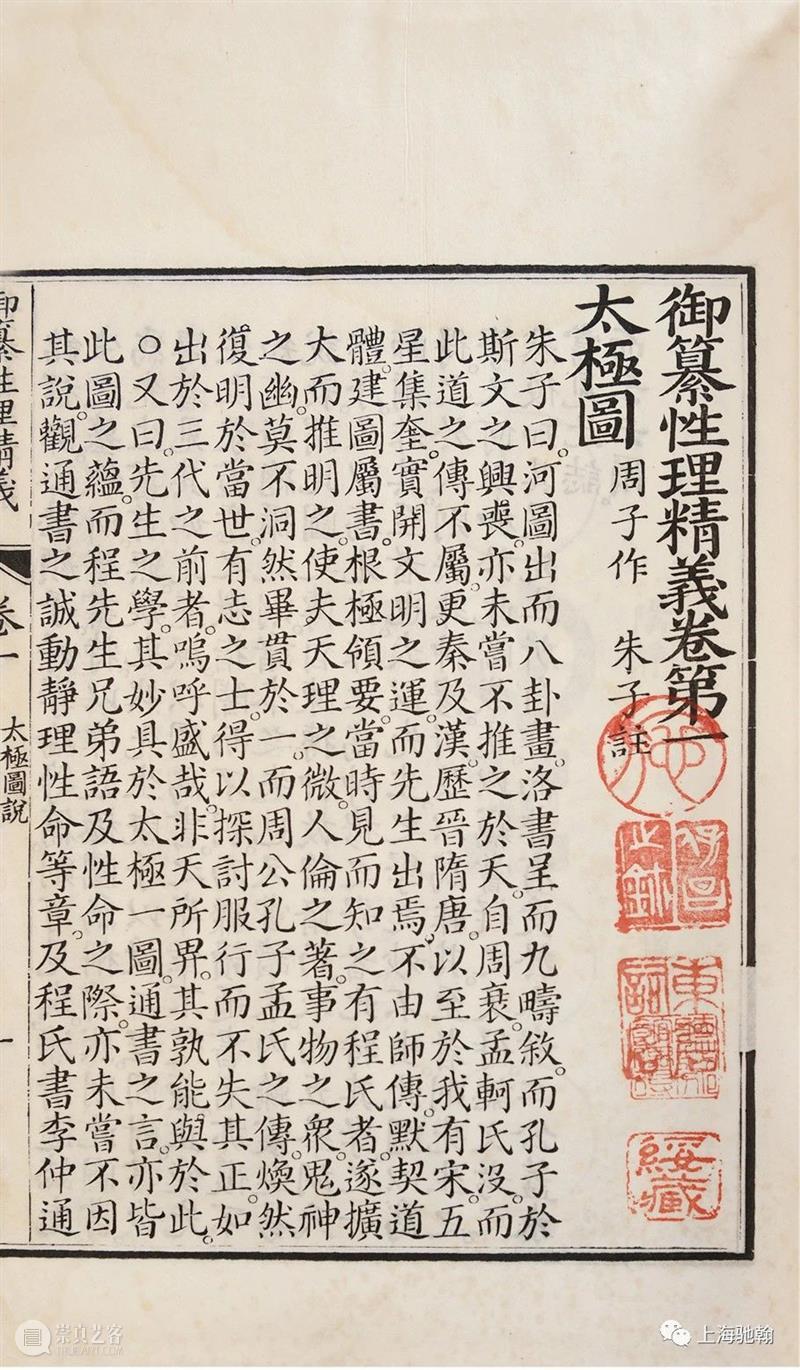 御纂性理精義卷第一
太極圖 周子作 朱子註
朱子曰。河圖出而八卦畫。洛書呈而九疇敘。而孔子於
斯文之興喪。亦未嘗不推之於天。自周衰。孟軻氏沒。而
此道之傳不屬。更秦及漢。歷晉隋唐。以至於我有宋。五
星集奎。實開文明之運。而先生出焉。不由師傳。默契道
體。建圖屬書。根極領要。當時見而知之。有程氏者。遂擴
大而推明之。使夫天理之微。人倫之著。事物之衆。鬼神
之幽。莫不洞然畢貫於一。而周公孔子孟氏之傳。煥然
復明於當世。有志之士。得以探討服行。而不失其正。如
出於三代之前者。嗚呼盛哉。非天所畀。其孰能與於此。
○又曰。先生之學。其妙具於太極一圖。通書之言。亦皆
此圖之蘊。而程先生兄弟語及性命之際。亦未嘗不因
其說。觀通書之誠動靜理性命等章。及程氏書李仲通
御纂性理精義
卷一
太極圖說
一
綏藏
崇真艺客
HTTP://WWW.TRUEART.COM
上海驰翰